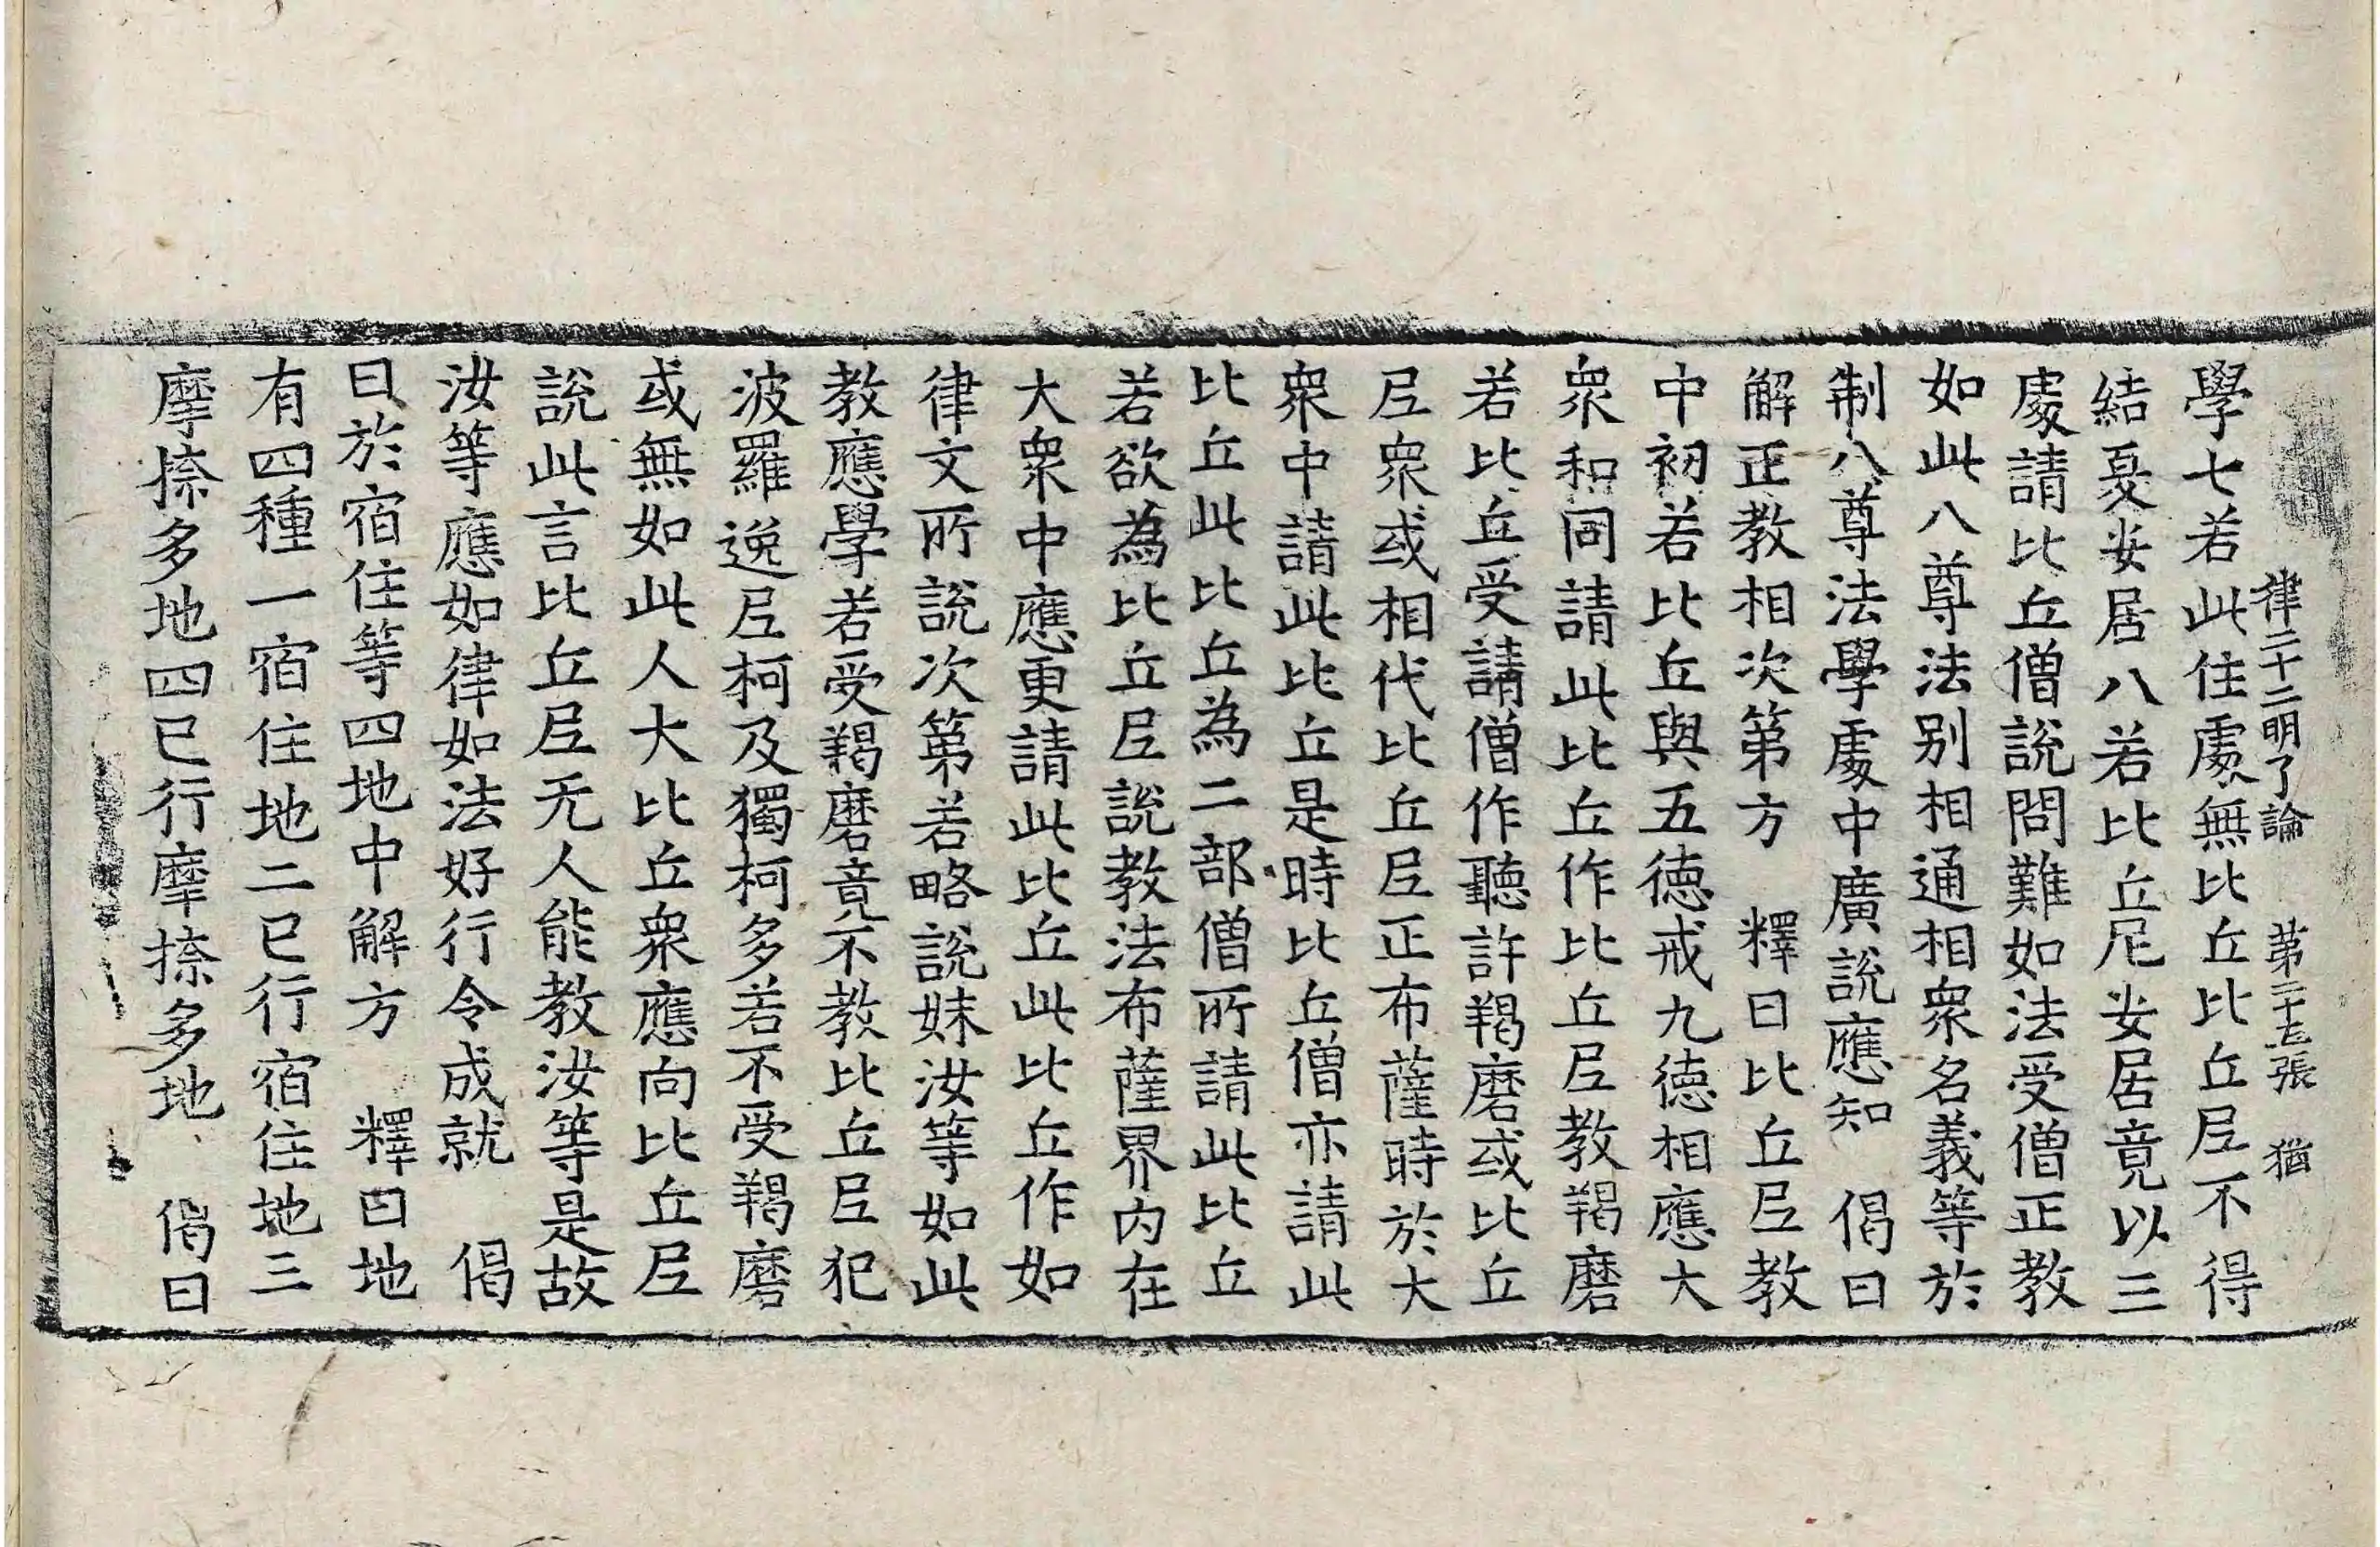 律二十二明了論 第二十五張 猶
學七若此住處無比丘比丘尼不得
結夏安居八若比丘尼安居竟以三
處請比丘僧說問難如法受僧正教
如此八尊法別相通相衆名義等於
制八尊法學處中廣說應知 偈曰
解正教相次第方 釋曰比丘尼教
中初若比丘與五德戒九德相應大
衆和同請此比丘作比丘尼教羯磨
若比丘受請僧作聽許羯磨或比丘
尼衆或相代比丘尼正布薩時於大
衆中請此比丘是時比丘僧亦請此
比丘此比丘為二部僧所請此比丘
若欲為比丘尼說教法布薩界內在
大衆中應更請此比丘此比丘作如
律文所說次第若略說妹汝等如此
教應學若受羯磨竟不教比丘尼犯
波羅逸尼柯及獨柯多若不受羯磨
或無如此人大比丘衆應向比丘尼
說此言比丘尼无人能教汝等是故
汝等應如律如法好行令成就 偈
曰於宿住等四地中解方 釋曰地
有四種一宿住地二已行宿住地三
摩捺多地四已行摩捺多地 偈曰